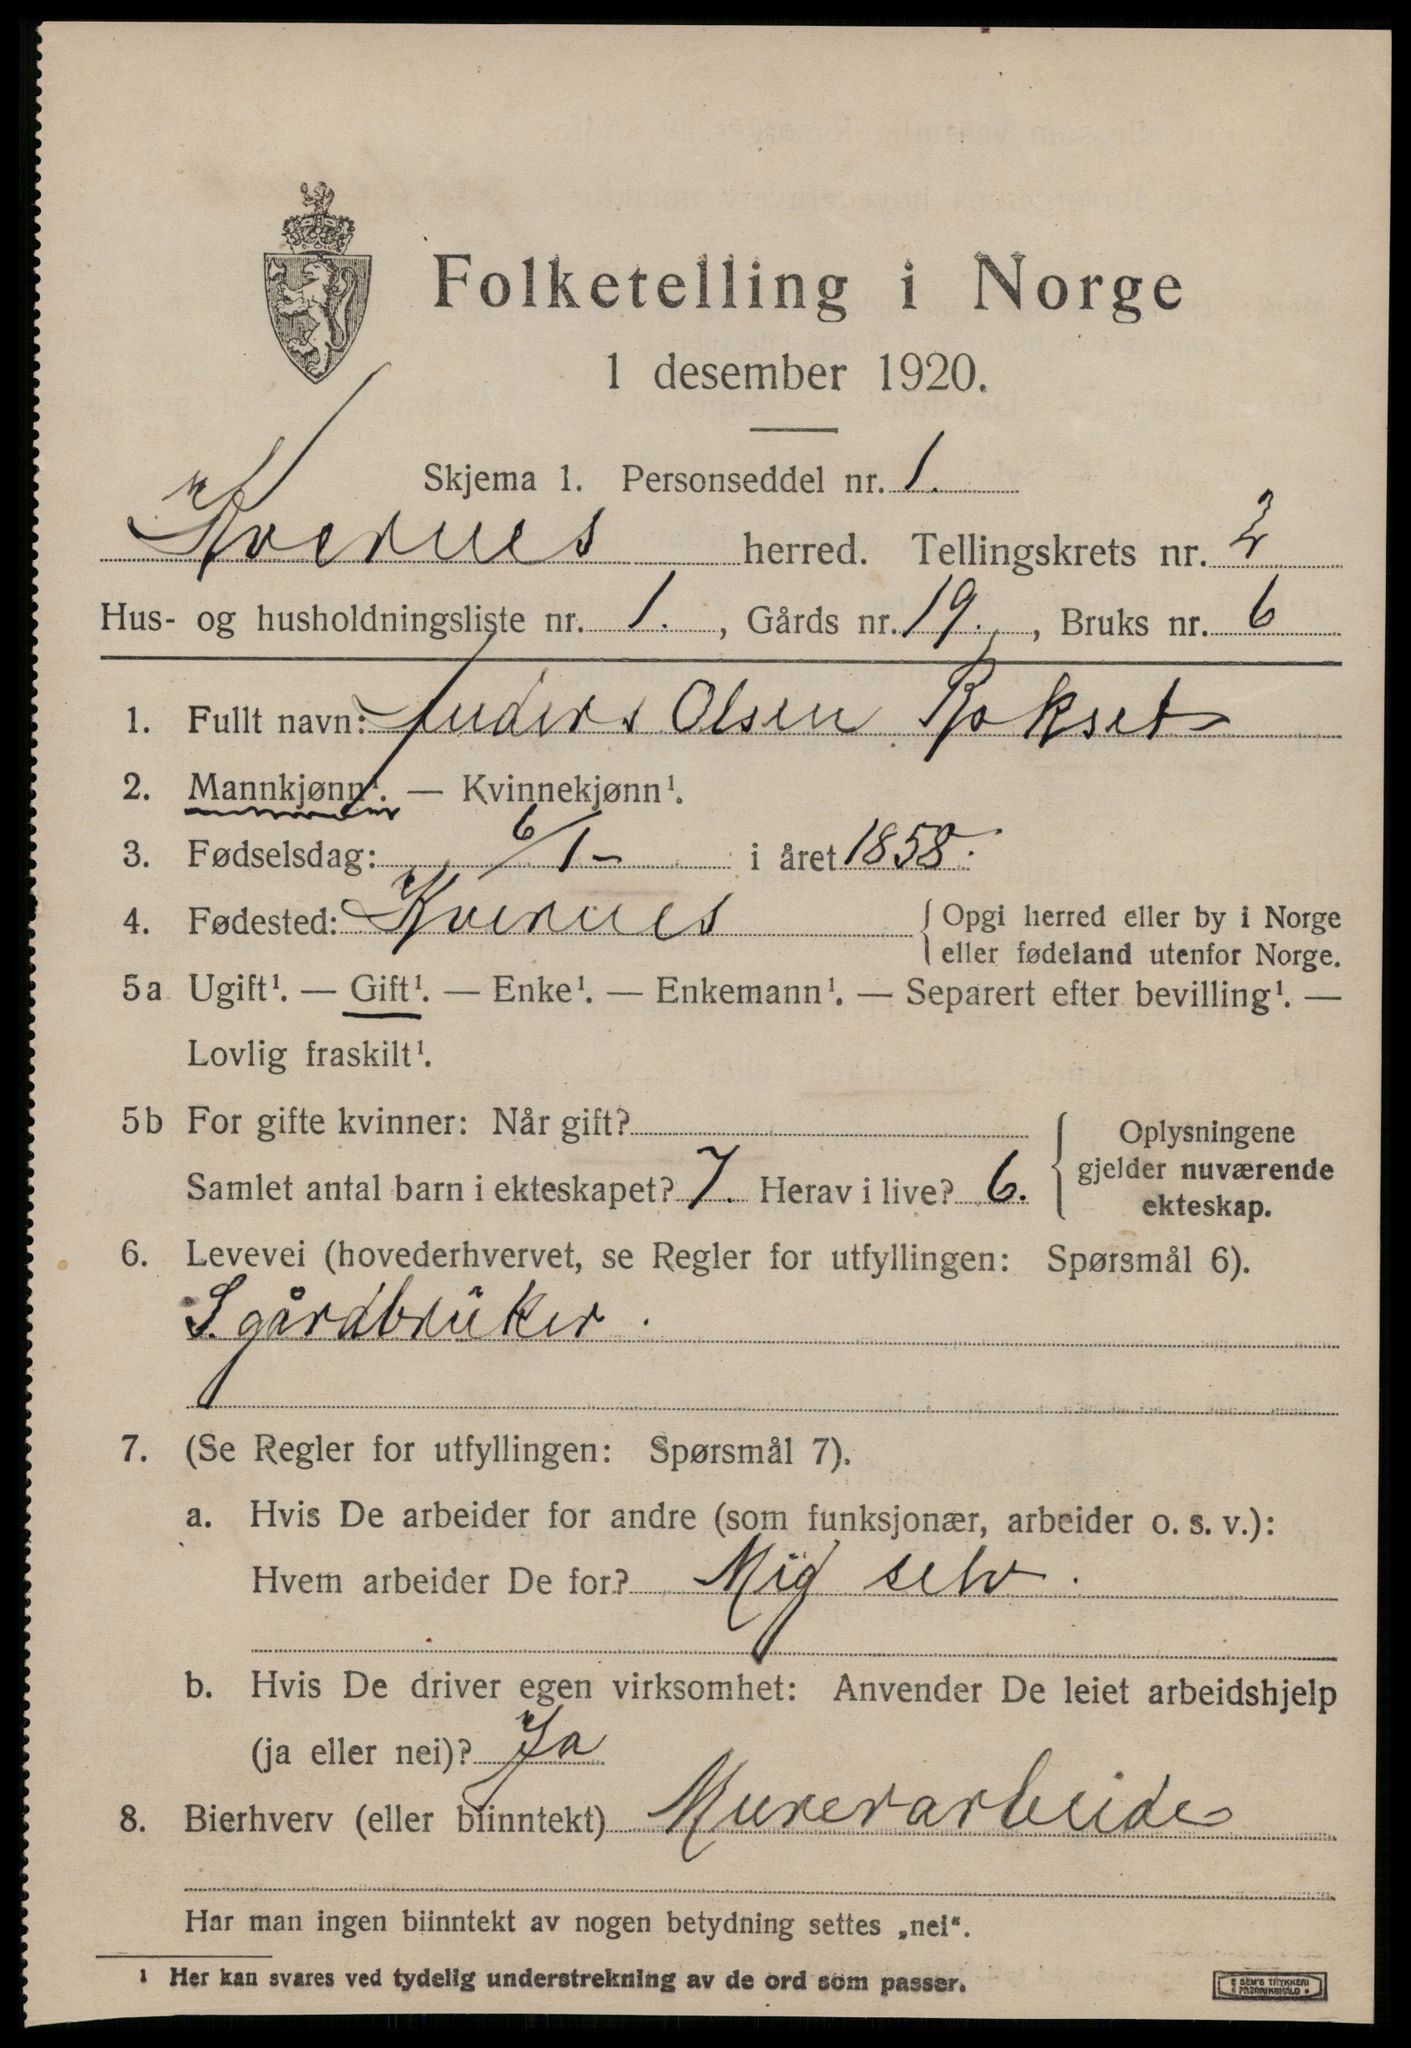 Folketelling i Norge
1 desember 1920.
Skjema 1. Personseddel nr. 1.
Kvernes herred. Tellingskrets nr. 2
Hus- og husholdningsliste nr. 1. , Gårds nr. 19. , Bruks nr. 6
1. Fullt navn: Anders Olsen Røkset
2. Mannkjønn¹. — Kvinnekjønn¹.
3. Fødselsdag: 6/1- i året 1858.
4. Fødested: Kvernes { Opgi herred eller by i Norge
eller fødeland utenfor Norge.
5a Ugift¹. — Gift¹. — Enke¹. — Enkemann¹. — Separert efter bevilling¹. —
Lovlig fraskilt¹.
5b For gifte kvinner: Når gift?
Samlet antal barn i ekteskapet? 7. Herav i live? 6.
Oplysningene
gjelder nuværende
ekteskap.
6. Levevei (hovederhvervet, se Regler for utfyllingen: Spørsmål 6).
S. gårdbrüker.
7. (Se Regler for utfyllingen: Spørsmål 7).
a. Hvis De arbeider for andre (som funksjonær, arbeider o. s. v.):
Hvem arbeider De for? Mig selv.
b. Hvis De driver egen virksomhet: Anvender De leiet arbeidshjelp
(ja eller nei)? Ja
8. Bierhverv (eller biinntekt) Murerarbeide
Har man ingen biinntekt av nogen betydning settes „nei“.
¹ Her kan svares ved tydelig understrekning av de ord som passer.
SEM'S TRYKKERI
FREDRIKSHALD